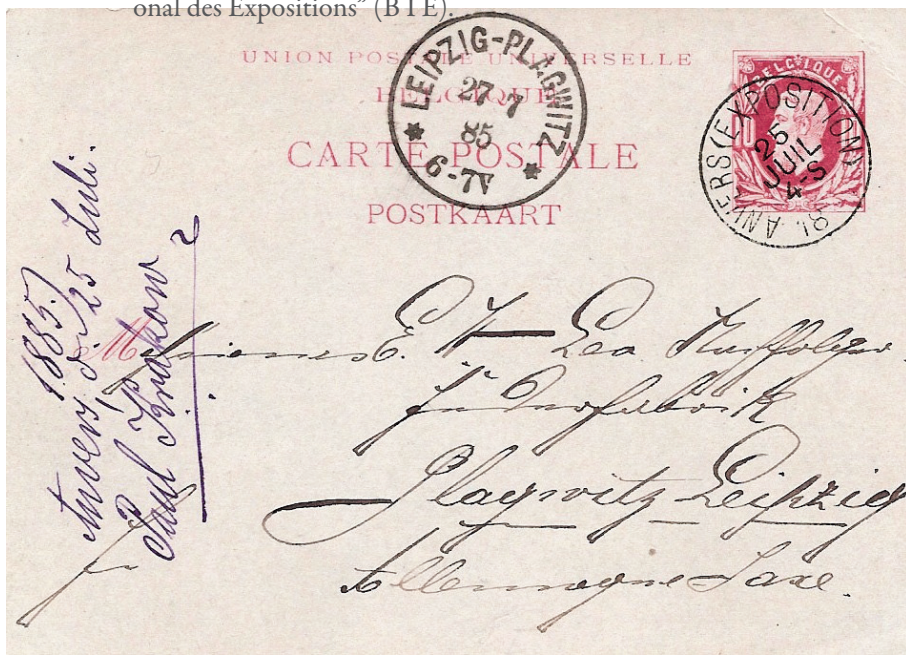 onal des Expositions” (BTE).
UNION POSTALE UNIVERSELLE
BELGIQUE
CARTE POSTALE
POSTKAART
LEIPZIG-PLAGWITZ
27 7
85
6-7V
BELGIQUE
10
ANVERS (EXPOSITION)
25
JUIL
4-S
1885.
Anvers, d. 25 Juli.
Paul Krakow
M
E. Leo Nachfolger.
Plagwitz-Leipzig
Allemagne Saxe.